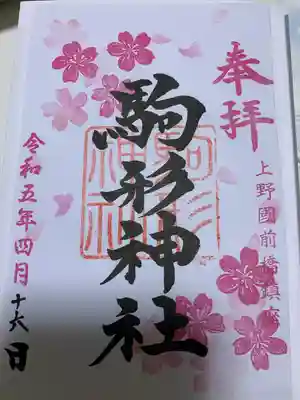 奉拝
上野國前橋鎮座
駒形神社
駒形神社
令和五年四月十六日